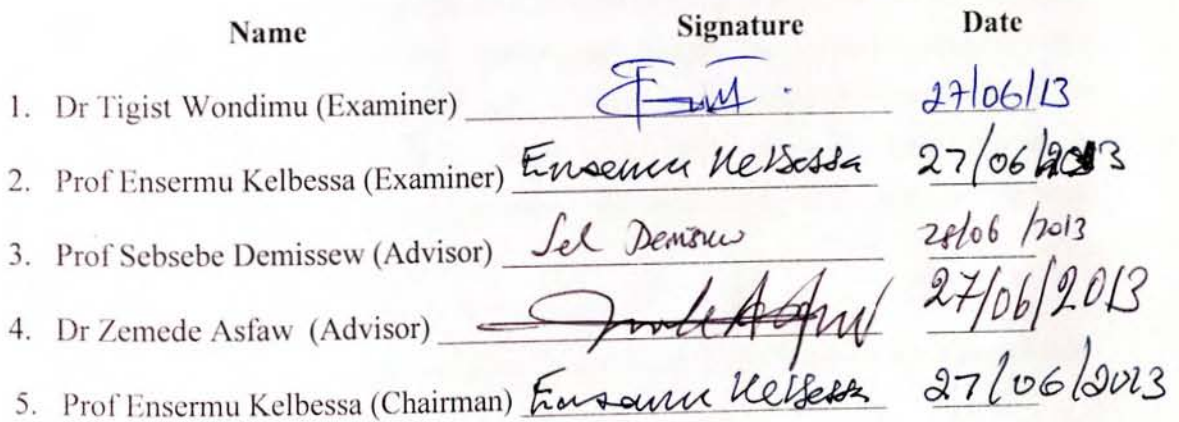 Name Signature Date
1. Dr Tigist Wondimu (Examiner) 27/06/13
2. Prof Ensermu Kelbessa (Examiner) Ensermu Kelbessa 27/06/2013
3. Prof Sebsebe Demissew (Advisor) Seb Demissew 28/06/2013
4. Dr Zemede Asfaw (Advisor) 27/06/2013
5. Prof Ensermu Kelbessa (Chairman) Ensermu Kelbessa 27/06/2013